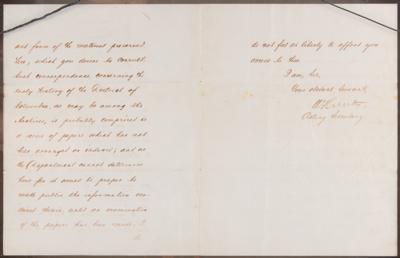 and form of the material preserved
here, which you desire to consult.
Such correspondence concerning the
early history of the District of
Columbia, as may be among the
Archives, is probably comprised in
a series of papers which has not
been arranged or indexed; and as
the Department cannot determine
how far it would be proper to
make public the information con-
tained therein, until an examination
of the papers has been made, I
do
do not feel at liberty to afford you
access to them.
I am, Sir,
Your obedient servant,
Acting Secretary